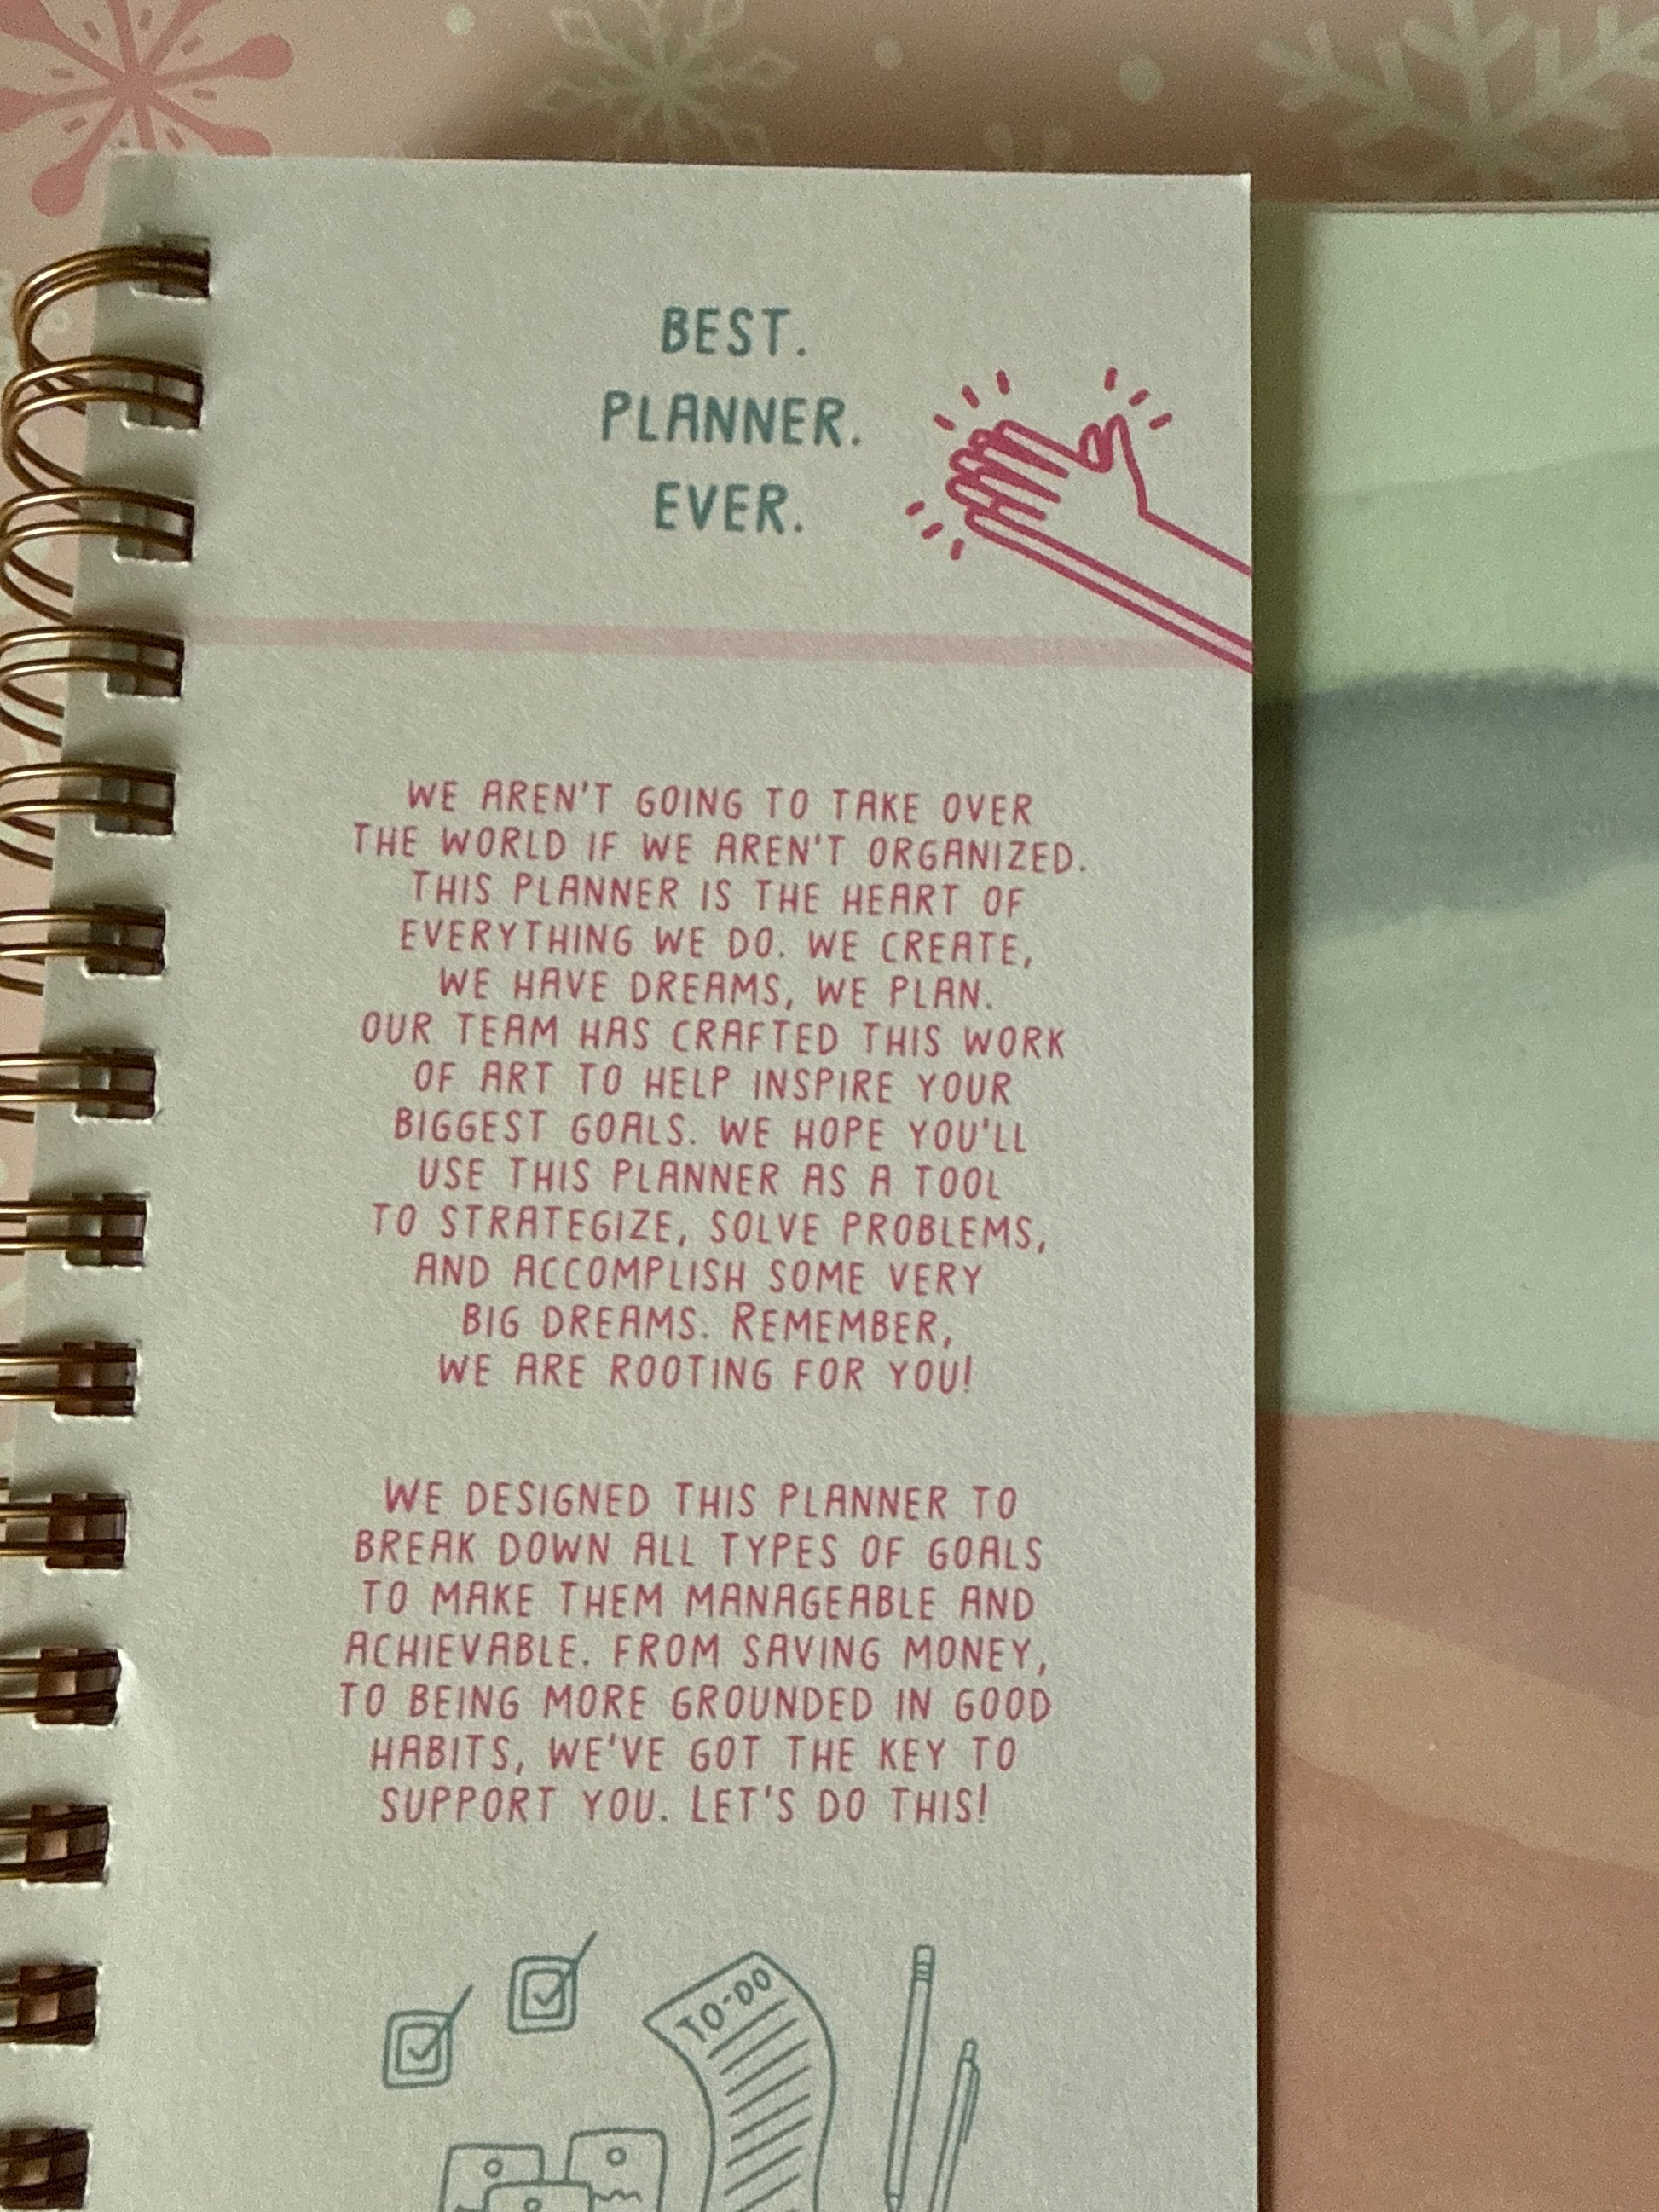 BEST.
PLANNER.
EVER.
WE AREN'T GOING TO TAKE OVER
THE WORLD IF WE AREN'T ORGANIZED.
THIS PLANNER IS THE HEART OF
EVERYTHING WE DO. WE CREATE,
WE HAVE DREAMS, WE PLAN.
OUR TEAM HAS CRAFTED THIS WORK
OF ART TO HELP INSPIRE YOUR
BIGGEST GOALS. WE HOPE YOU'LL
USE THIS PLANNER AS A TOOL
TO STRATEGIZE, SOLVE PROBLEMS,
AND ACCOMPLISH SOME VERY
BIG DREAMS. REMEMBER,
WE ARE ROOTING FOR YOU!
WE DESIGNED THIS PLANNER TO
BREAK DOWN ALL TYPES OF GOALS
TO MAKE THEM MANAGEABLE AND
ACHIEVABLE. FROM SAVING MONEY,
TO BEING MORE GROUNDED IN GOOD
HABITS, WE'VE GOT THE KEY TO
SUPPORT YOU. LET'S DO THIS!
TO-DO